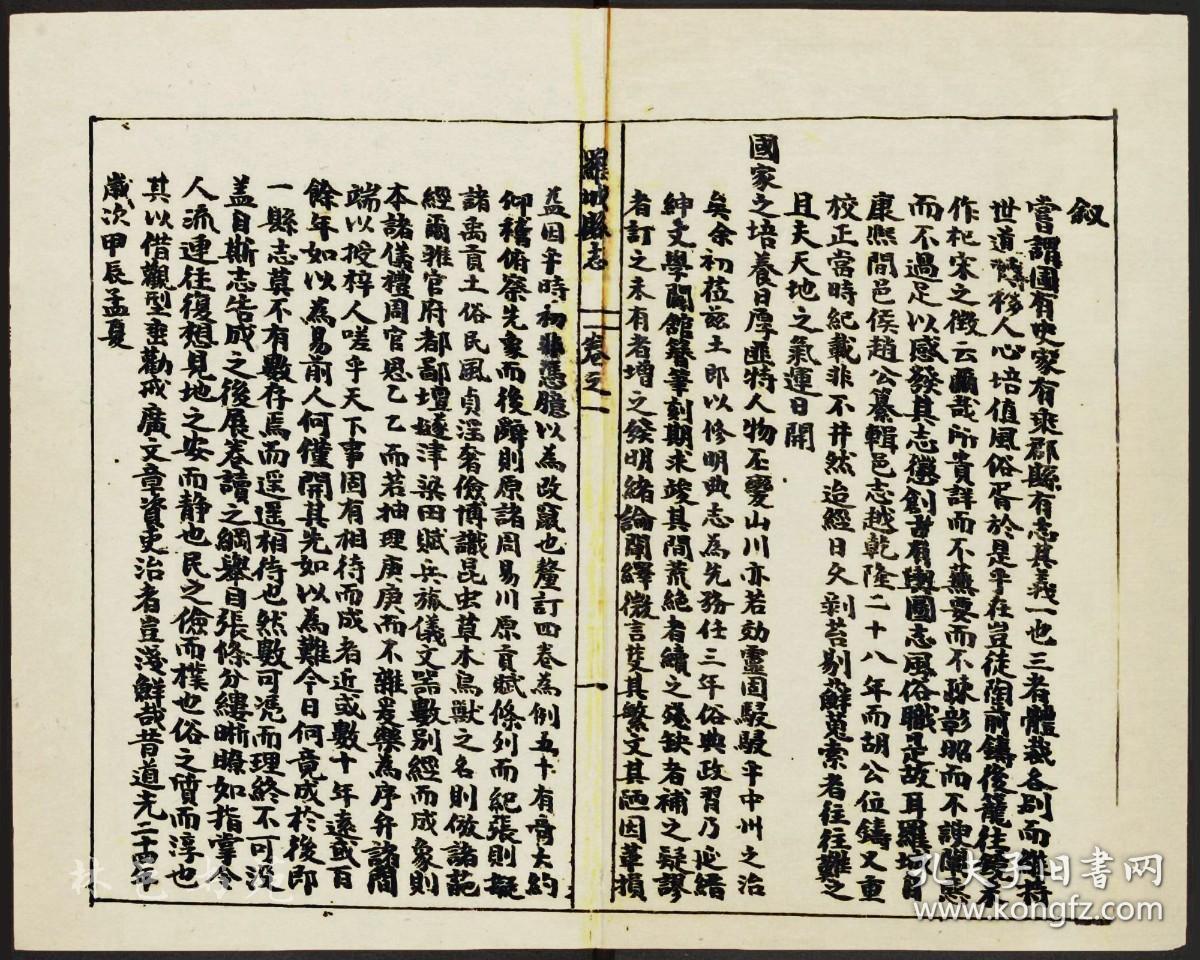 叙
嘗謂國有史家有乘郡縣有志其義一也三者體裁各別而維持
世道轉移人心培值風俗胥於是乎在豈徒陶前鑄後籠往
作杞宋之徵云爾哉所貴詳而不蕪要而不踈彰昭而不諛闡
而不過足以感發其志懲創昔有輿圖志風俗職是故耳羅城自
康熙間邑侯趙公纂輯邑志越乾隆二十八年而胡公位鑄又重
校正當時紀載非不井然迨經日久剝苔剔蘚蒐索者往往難之
且夫天地之氣運日開
國家之培養日厚匪特人物丕變山川亦若効靈固駸駸乎中州之治
矣余初莅兹土即以修明典志為先務任三年俗典政習乃延縉
紳文學開館簪筆刻期求竣其間荒絶者續之殘缺者補之疑謬
者訂之未有者增之發明緒論闡繹微言芟其繁文其陋因革損
羅城縣志 卷之一 一
益因乎時初非憑臆以為改竄也釐訂四卷為例五十有奇大約
仰稽俯察先象而後躔則原諸周易川原貢賦條列而紀張則擬
諸禹貢土俗民風貞淫奢儉博識昆虫草木鳥獸之名則倣諸葩
經爾雅官府都鄙壇壝津梁田賦兵旅儀文噐數別經而成象則
本諸儀禮周官恩乙乙而若抽理庚庚而不雜爰藥為序弁諸簡
端以授梓人嗟乎天下事固有相待而成者近或數十年遠或百
餘年如以為易前人何僅開其先如以為難今日何竟成於後即
一縣志莫不有數存焉而遥遥相待也然數可凴而理終不可沒
盖自斯志告成之後展卷讀之綱舉目張條分縷晰瞭如指掌令
人流連往復想見地之安而静也民之儉而樸也俗之噴而淳也
其以借觀型埀勸戒廣文章資吏治者豈淺鮮哉昔道光二十四年
歲次甲辰孟夏
林邑書苑
孔夫子旧书网
www.kongfz.com